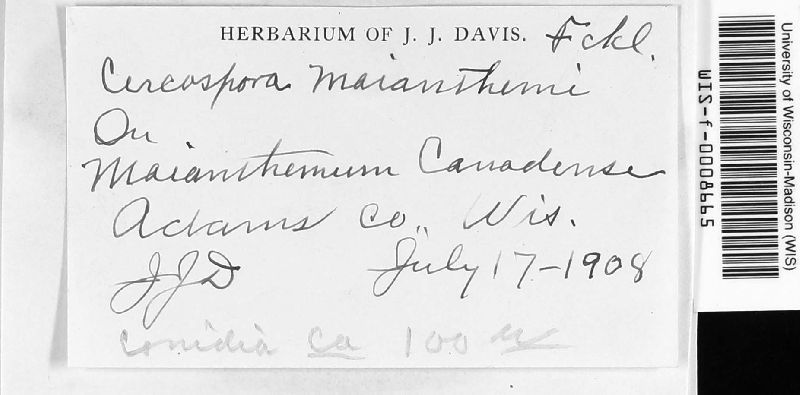 HERBARIUM OF J. J. DAVIS. Fckl.
Cercospora Maianthemi
On
Maianthemum Canadense
Adams Co., Wis.
JJD July 17-1908
conidia ca 100 µ
University of Wisconsin-Madison (WIS)
WIS-f-0008665